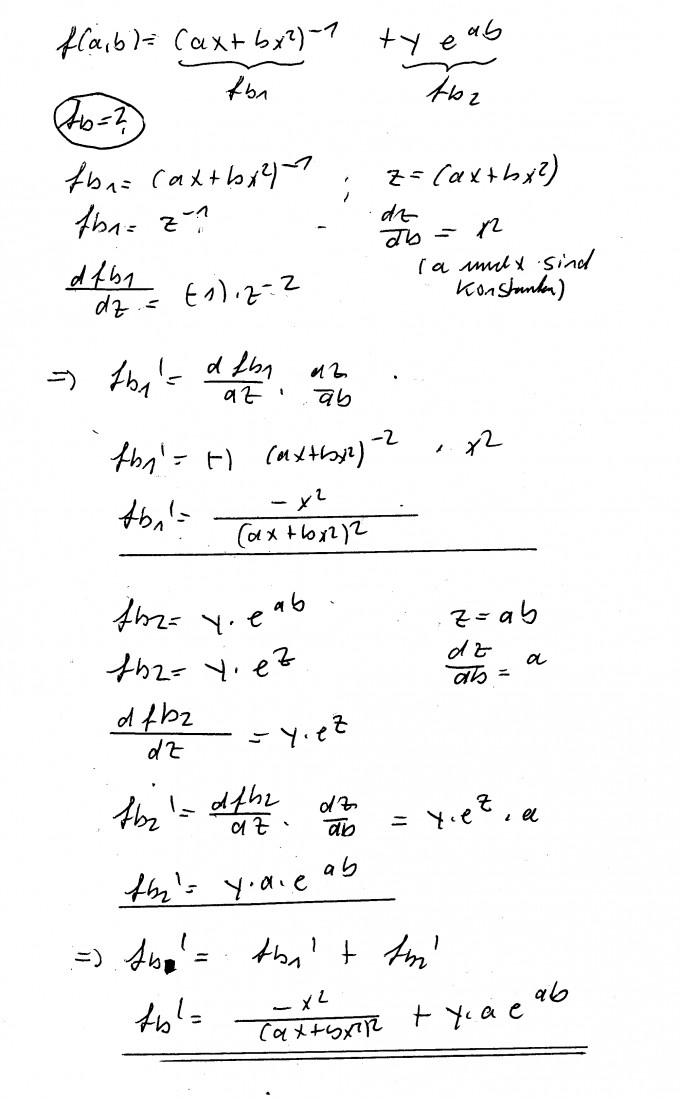 f(a,b) = (ax + bx²)⁻¹ + y e^ab
fb1 fb2
fb = ?
fb1 = (ax + bx²)⁻¹ ; z = (ax + bx²)
fb1 = z⁻¹ dz/db = x²
(a und x sind
Konstanten)
dfb1/dz = (-1) · z⁻²
=> fb1' = dfb1/dz · dz/db
fb1' = (-) (ax + bx²)⁻² · x²
fb1' = -x²/(ax + bx²)²
fb2 = y · e^ab z = ab
fb2 = y · e^z dz/db = a
dfb2/dz = y · e^z
fb2' = dfb2/dz · dz/db = y · e^z · a
fb2' = y · a · e^ab
=> fb' = fb1' + fb2'
fb' = -x²/(ax + bx²)² + y · a e^ab